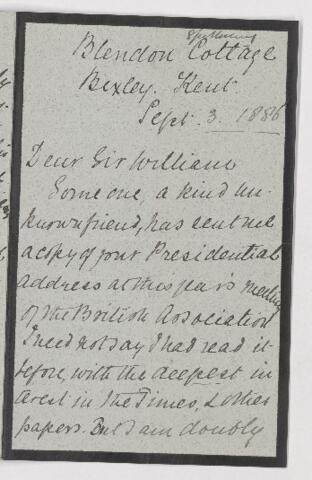 Blendon Cottage
Bexley. Kent
Sept. 3. 1886
Dear Sir William
Some one, a kind un-
known friend, has sent me
a copy of your Presidential
address at this year's meeting
of the British Association
I need not say I had read it
before, with the deepest in
terest in the Times, & other
papers. But I am doubly